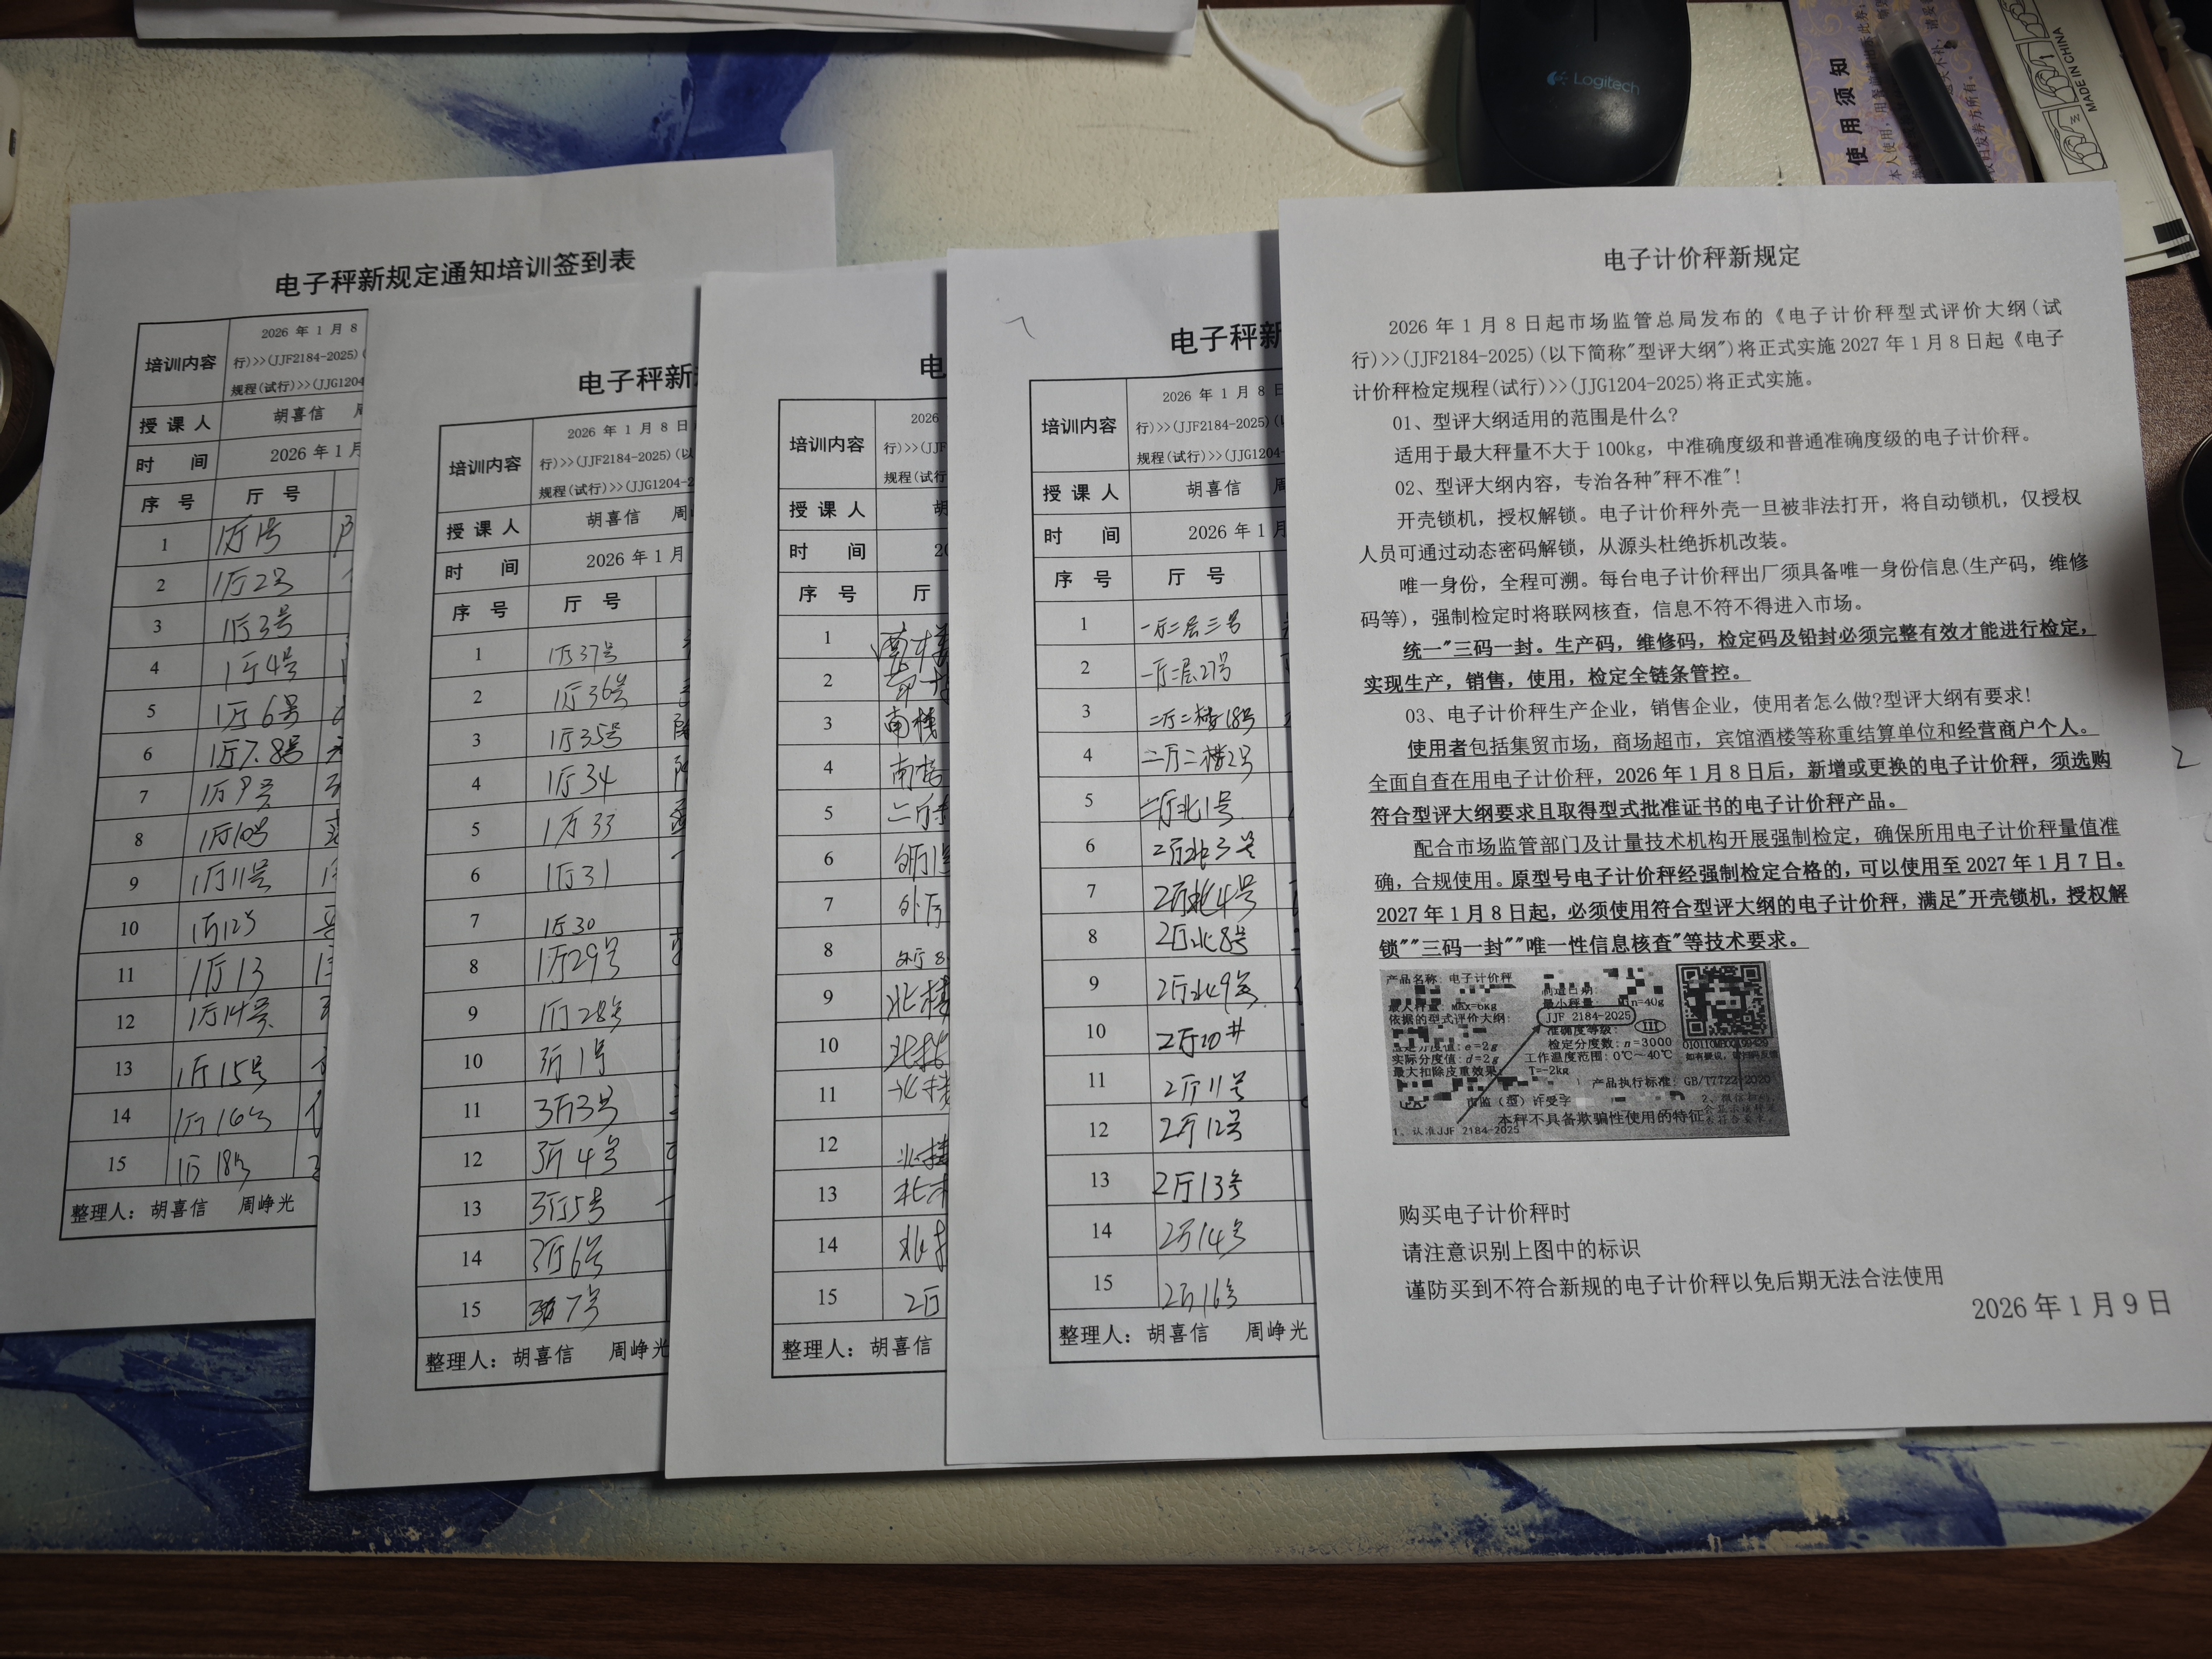 Logitech
使用须知
MADE IN CHINA
电子秤新规定通知培训签到表
培训内容
2026 年 1 月 8
行)>>(JJF2184-2025)(
规程(试行)>>(JJG1204
授 课 人
胡喜信
时 间
2026 年 1 月
序 号
厅 号
1 1厅1号
2 1厅2号
3 1厅3号
4 1厅4号
5 1厅6号
6 1厅7.8号
7 1厅9号
8 1厅10号
9 1厅11号
10 1厅12号
11 1厅13
12 1厅14号
13 1厅15号
14 1厅16号
15 1厅18号
整理人: 胡喜信 周峥光
电子秤新
培训内容
2026 年 1 月 8 日
行)>>(JJF2184-2025)(以
规程(试行)>>(JJG1204-2
授 课 人
胡喜信 周
时 间
2026 年 1 月
序 号
厅 号
1 1厅37号
2 1厅36号
3 1厅35号
4 1厅34
5 1厅33
6 1厅31
7 1厅30
8 1厅29号
9 1厅28号
10 3厅1号
11 3厅3号
12 3厅4号
13 3厅5号
14 3厅6号
15 7号
整理人: 胡喜信 周峥光
电
培训内容
2026
行)>>(JJF
规程(试行
授 课 人
胡
时 间
20
序 号
厅
1
2
3 南楼
4 南
5 二厅
6 外厅1
7 外厅
8 外厅8
9 北楼
10 北
11 北楼
12 北楼
13 北
14 北
15 2厅
整理人: 胡喜信
电子秤新
培训内容
2026 年 1 月 8 日
行)>>(JJF2184-2025)(
规程(试行)>>(JJG1204-
授 课 人
胡喜信 周
时 间
2026 年 1 月
序 号
厅 号
1 一厅二层三号
2 一厅二层27号
3 二厅二楼18号
4 二厅二楼2号
5 二厅北1号
6 2厅北3号
7 2厅北4号
8 2厅北8号
9 2厅北9号
10 2厅10#
11 2厅11号
12 2厅12号
13 2厅13号
14 2厅14号
15 2厅16号
整理人: 胡喜信 周峥光
电子计价秤新规定
2026 年 1 月 8 日起市场监管总局发布的《电子计价秤型式评价大纲(试
行)>>(JJF2184-2025)(以下简称"型评大纲")将正式实施 2027 年 1 月 8 日起《电子
计价秤检定规程(试行)>>(JJG1204-2025)将正式实施。
01、型评大纲适用的范围是什么?
适用于最大秤量不大于 100kg，中准确度级和普通准确度级的电子计价秤。
02、型评大纲内容，专治各种"秤不准"!
开壳锁机，授权解锁。电子计价秤外壳一旦被非法打开，将自动锁机，仅授权
人员可通过动态密码解锁，从源头杜绝拆机改装。
唯一身份，全程可溯。每台电子计价秤出厂须具备唯一身份信息(生产码，维修
码等)，强制检定时将联网核查，信息不符不得进入市场。
统一"三码一封。生产码，维修码，检定码及铅封必须完整有效才能进行检定，
实现生产，销售，使用，检定全链条管控。
03、电子计价秤生产企业，销售企业，使用者怎么做?型评大纲有要求!
使用者包括集贸市场，商场超市，宾馆酒楼等称重结算单位和经营商户个人。
全面自查在用电子计价秤，2026 年 1 月 8 日后，新增或更换的电子计价秤，须选购
符合型评大纲要求且取得型式批准证书的电子计价秤产品。
配合市场监管部门及计量技术机构开展强制检定，确保所用电子计价秤量值准
确，合规使用。原型号电子计价秤经强制检定合格的，可以使用至 2027 年 1 月 7 日。
2027 年 1 月 8 日起，必须使用符合型评大纲的电子计价秤，满足"开壳锁机，授权解
锁""三码一封""唯一性信息核查"等技术要求。
产品名称: 电子计价秤
制造日期:
最大秤量: Max=6kg 最小秤量: Min=40g
依据的型式评价大纲: JJF 2184-2025
准确度等级: III
e=2g 检定分度数: n=3000
实际分度值: d=2g 工作温度范围: 0℃~40℃
最大扣除皮重效果: T=-2kg
产品执行标准: GB/T7722-2020
市监（型）许受字
本秤不具备欺骗性使用的特征
1、认准JJF 2184-2025
购买电子计价秤时
请注意识别上图中的标识
谨防买到不符合新规的电子计价秤以免后期无法合法使用
2026 年 1 月 9 日